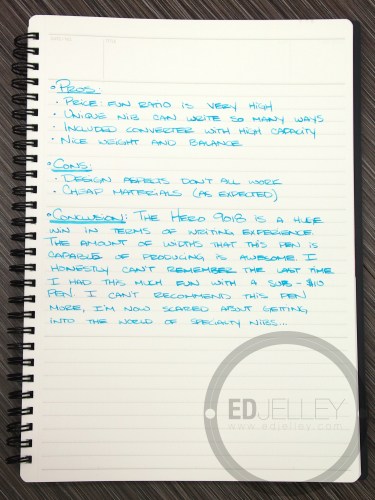 • Pros:
· Price:fun ratio is very high
· Unique nib can write so many ways
· Included converter with high capacity
· Nice weight and balance
• Cons:
· Design aspects don't all work
· Cheap materials (as expected)
• Conclusion: The Hero 9018 is a huge
win in terms of writing experience.
The amount of widths that this pen is
capable of producing is awesome. I
honestly can't remember the last time
I had this much fun with a sub-$10
pen. I can't recommend this pen
more, I'm now scared about getting
into the world of specialty nibs...
EDJELLEY
www.edjelley.com